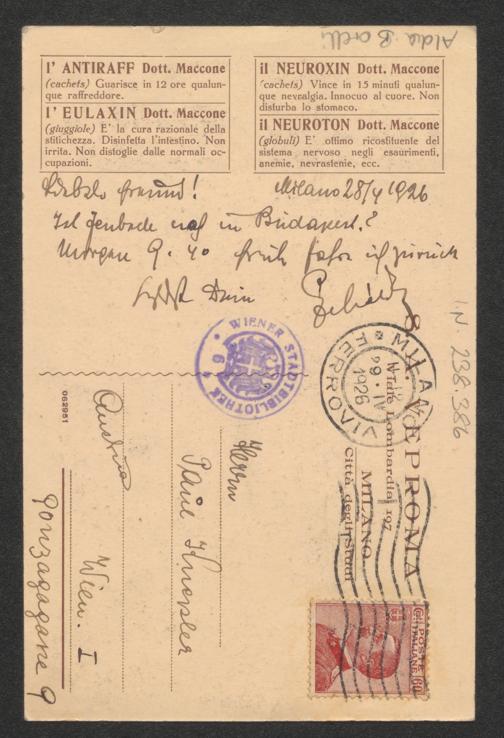 Aldo B
l' ANTIRAFF Dott. Maccone
(cachets) Guarisce in 12 ore qualun-
que raffreddore.
l' EULAXIN Dott. Maccone
(giuggiole) E' la cura razionale della
stitichezza. Disinfetta l'intestino. Non
irrita. Non distoglie dalle normali oc-
cupazioni.
il NEUROXIN Dott. Maccone
(cachets) Vince in 15 minuti qualun-
que nevralgia. Innocuo al cuore. Non
disturba lo stomaco.
il NEUROTON Dott. Maccone
(globuli) E' ottimo ricostituente del
sistema nervoso negli esaurimenti,
anemie, nevrastenie, ecc.
Milano 28/4 1926
Liebster Freund!
Ist noch in Budapest?
Morgen 9.40 früh fahre ich zurück
Dein
I.N. 238.386
WIENER STADTBIBLIOTHEK
MILANO
FERROVIA
29.IV
1926
VEPROMA
Viale Lombardia 197
MILANO
Città degli Studi
POSTE ITALIANE
60
062951
Herrn
Paul Knepler
Wien. I
Austria
Gonzagagasse 9